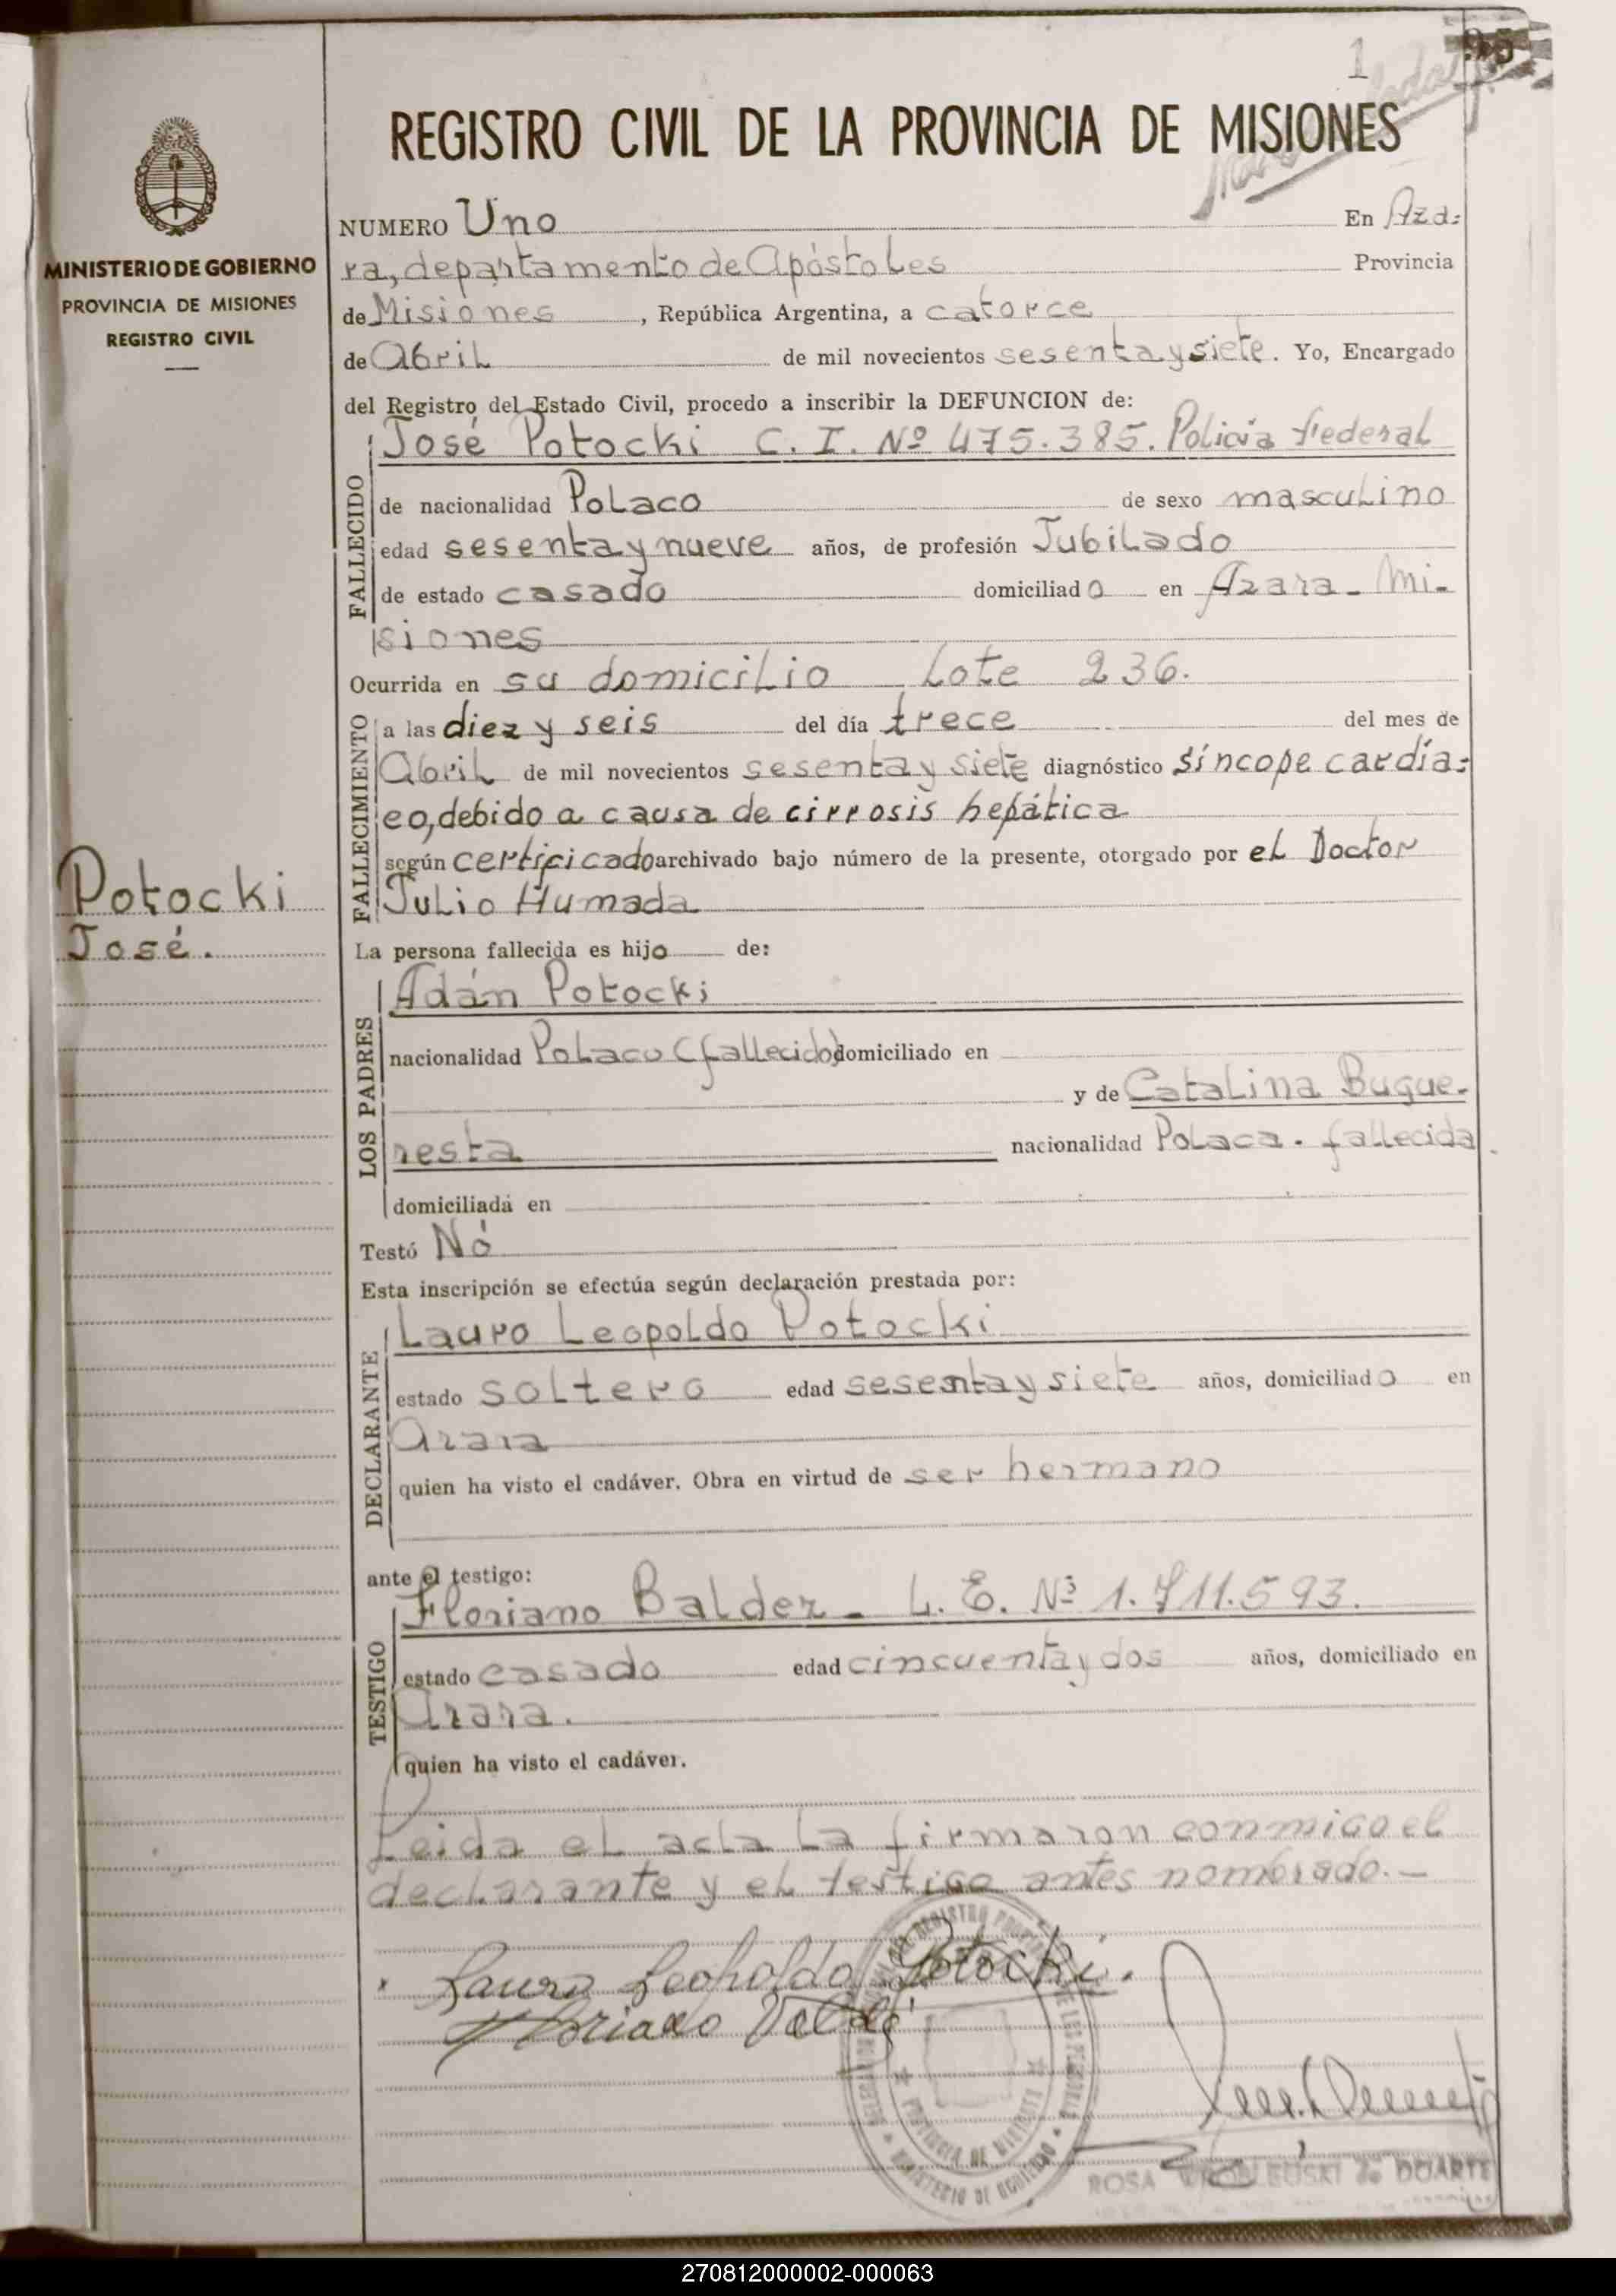 1
95
REGISTRO CIVIL DE LA PROVINCIA DE MISIONES
MINISTERIO DE GOBIERNO
PROVINCIA DE MISIONES
REGISTRO CIVIL
NUMERO Uno En Aza=
ra, departamento de Apóstoles Provincia
de Misiones , República Argentina, a catorce
de Abril de mil novecientos sesenta y siete. Yo, Encargado
del Registro del Estado Civil, procedo a inscribir la DEFUNCION de:
FALLECIDO
José Potocki C. I. Nº 475.385. Policía Federal
de nacionalidad Polaco de sexo masculino
edad sesenta y nueve años, de profesión Jubilado
de estado casado domiciliado en Azara - Mi-
siones
Ocurrida en su domicilio Lote 236.
FALLECIMIENTO
a las diez y seis del día trece del mes de
Abril de mil novecientos sesenta y siete diagnóstico síncope cardía=
co, debido a causa de cirrosis hepática
según certificado archivado bajo número de la presente, otorgado por el Doctor
Julio Humada
Potocki
José.
La persona fallecida es hijo de:
LOS PADRES
Adán Potocki
nacionalidad Polaco (fallecido) domiciliado en
y de Catalina Bugue-
resta nacionalidad Polaca. fallecida
domiciliada en
Testó Nó
Esta inscripción se efectúa según declaración prestada por:
DECLARANTE
Lauro Leopoldo Potocki
estado soltero edad sesenta y siete años, domiciliado en
Azara
quien ha visto el cadáver. Obra en virtud de ser hermano
ante el testigo:
TESTIGO
Floriano Baldez - L. E. Nº 1.711.593.
estado casado edad cincuenta y dos años, domiciliado en
Azara.
quien ha visto el cadáver.
Leida el acta la firmaron conmigo el
declarante y el testigo antes nombrado. -
Lauro Leopoldo Potocki.
Floriano
PROVINCIA DE MISIONES
MINISTERIO DE GOBIERNO
ROSA WROBLEUSKI de DUARTE
270812000002-000063